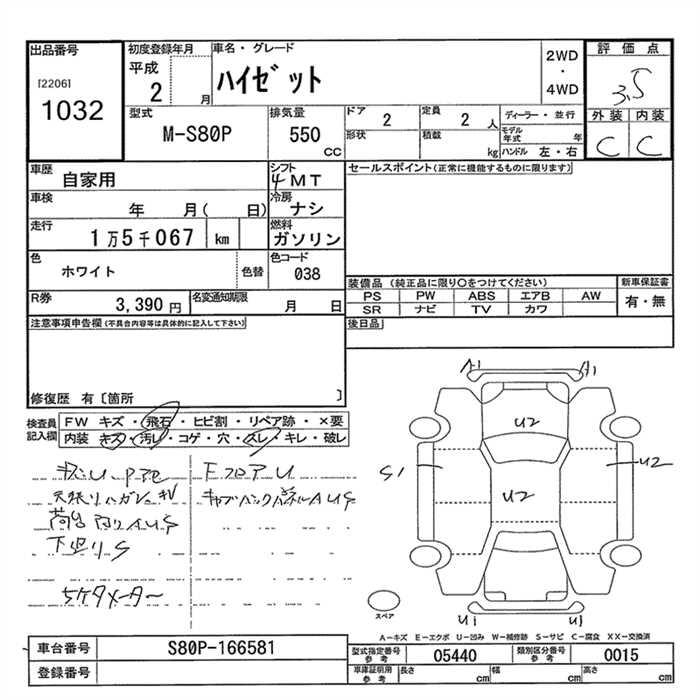 出品番号
[2206]
1032
初度登録年月
平成
2 月
車名・グレード
ハイゼット
2WD
・
4WD
評価点
3.5
外装 内装
C C
型式
M-S80P
排気量
550
CC
ドア
2
定員
2 人
形状
積載
kg
ディーラー・並行
モデル
年式 年
ハンドル 左・右
車歴
自家用
シフト
4MT
セールスポイント(正常に機能するものに限ります)
車検
年 月( 日)
冷房
ナシ
走行
1万5千067 km
燃料
ガソリン
色
ホワイト
色替
色コード
038
装備品 (純正品に限り○をつけてください)
PS PW ABS エアB AW
SR ナビ TV カワ
新車保証書
有・無
R券
3,390 円
名変通知期限
月 日
後日品
注意事項申告欄(不具合内容等は具体的に記入して下さい)
修復歴 有〔箇所 〕
検査員
記入欄
FW キズ・飛石・ヒビ割・リペア跡・×要
内装 キズ・汚レ・コゲ・穴・スレ・キレ・破レ
FフロアU
天張りハガレ
荷台
下廻りS
5ケタメーター
A1 A1
U2
S1
U2
U2
U1 U1
スペア
A-キズ E-エクボ U-凹み W-補修跡 S-サビ C-腐食 XX-交換済
車台番号
S80P-166581
型式指定番号
参考
05440
類別区分番号
参考
0015
登録番号
車庫証明用
参考
長さ
cm
幅
cm
高さ
cm